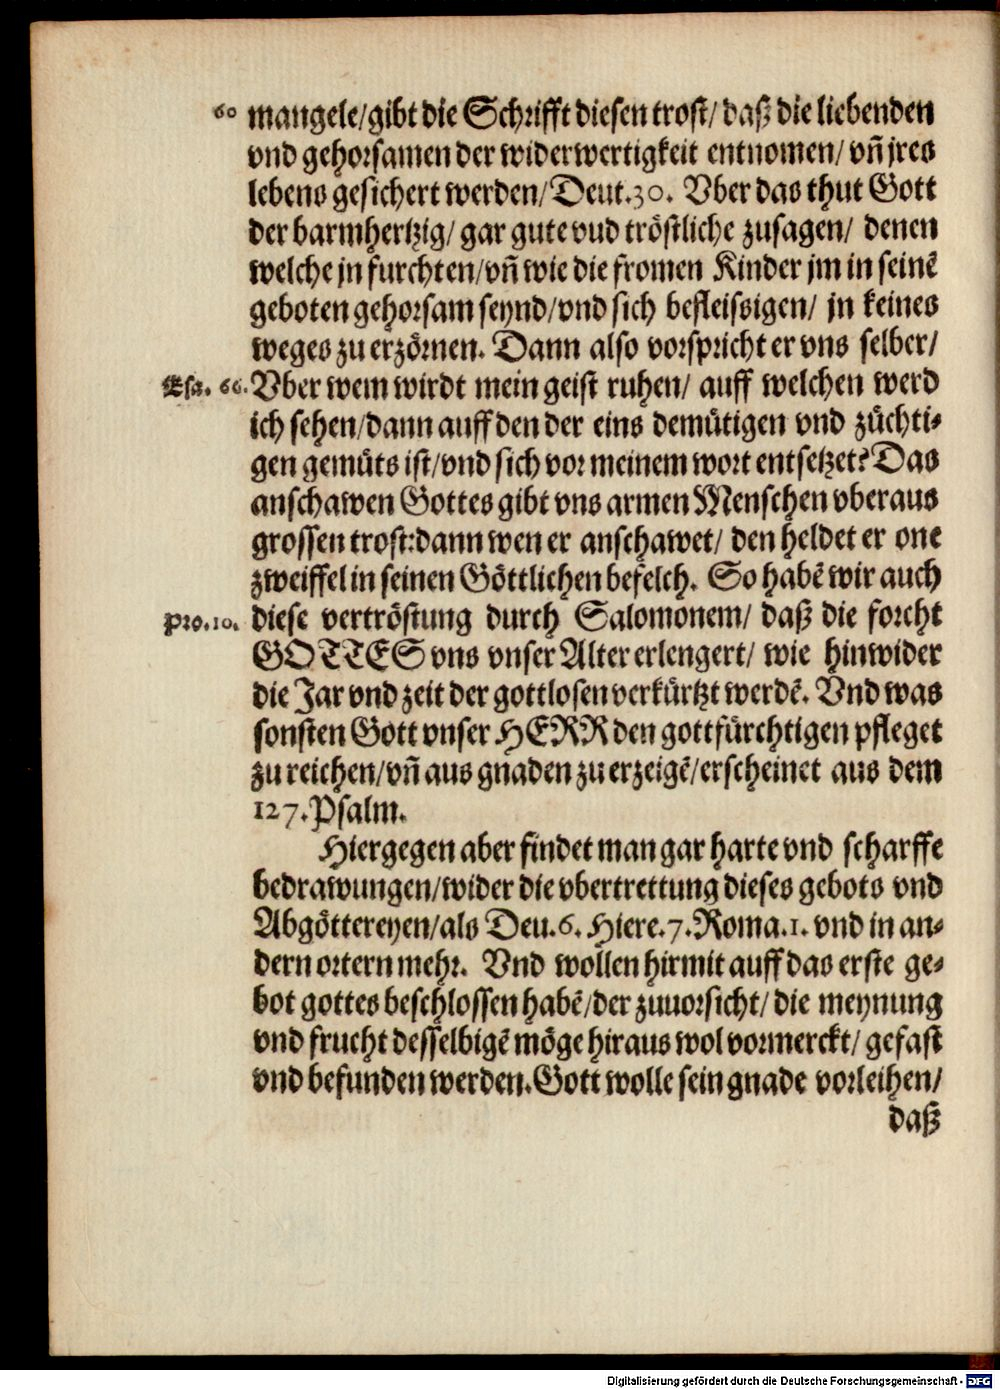 60 mangele/gibt die Schrifft diesen trost/ daß die liebenden
vnd gehorsamen der widerwertigkeit entnomen/ vñ jres
lebens gesichert werden/Deut.30. Vber das thut Gott
der barmhertzig/ gar gute vud tröstliche zusagen/ denen
welche jn furchten/vñ wie die fromen Kinder jm in seinē
geboten gehorsam seynd/vnd sich befleissigen/ jn keines
weges zu erzörnen. Dann also vorspricht er vns selber/
Esa. 66. Vber wem wirdt mein geist ruhen/ auff welchen werd
ich sehen/dann auff den der eins demütigen vnd züchti-
gen gemüts ist/vnd sich vor meinem wort entsetzet? Das
anschawen Gottes gibt vns armen Menschen vberaus
grossen trost:dann wen er anschawet/ den heldet er one
zweiffel in seinen Göttlichen befelch. So habē wir auch
Pro.10. diese vertröstung durch Salomonem/ daß die forcht
GOTTES vns vnser Alter erlengert/ wie hinwider
die Jar vnd zeit der gottlosen verkürtzt werdē. Vnd was
sonsten Gott vnser HERR den gottfürchtigen pfleget
zu reichen/vñ aus gnaden zu erzeigē/erscheinet aus dem
127.Psalm.
Hiergegen aber findet man gar harte vnd scharffe
bedrawungen/wider die vbertrettung dieses gebots vnd
Abgöttereyen/als Deu.6. Hiere.7.Roma.1. vnd in an-
dern ortern mehr. Vnd wollen hirmit auff das erste ge-
bot gottes beschlossen habē/der zuuorsicht/ die meynung
vnd frucht desselbigē möge hiraus wol vormerckt/ gefast
vnd befunden werden.Gott wolle sein gnade vorleihen/
daß
Digitalisierung gefördert durch die Deutsche Forschungsgemeinschaft - DFG